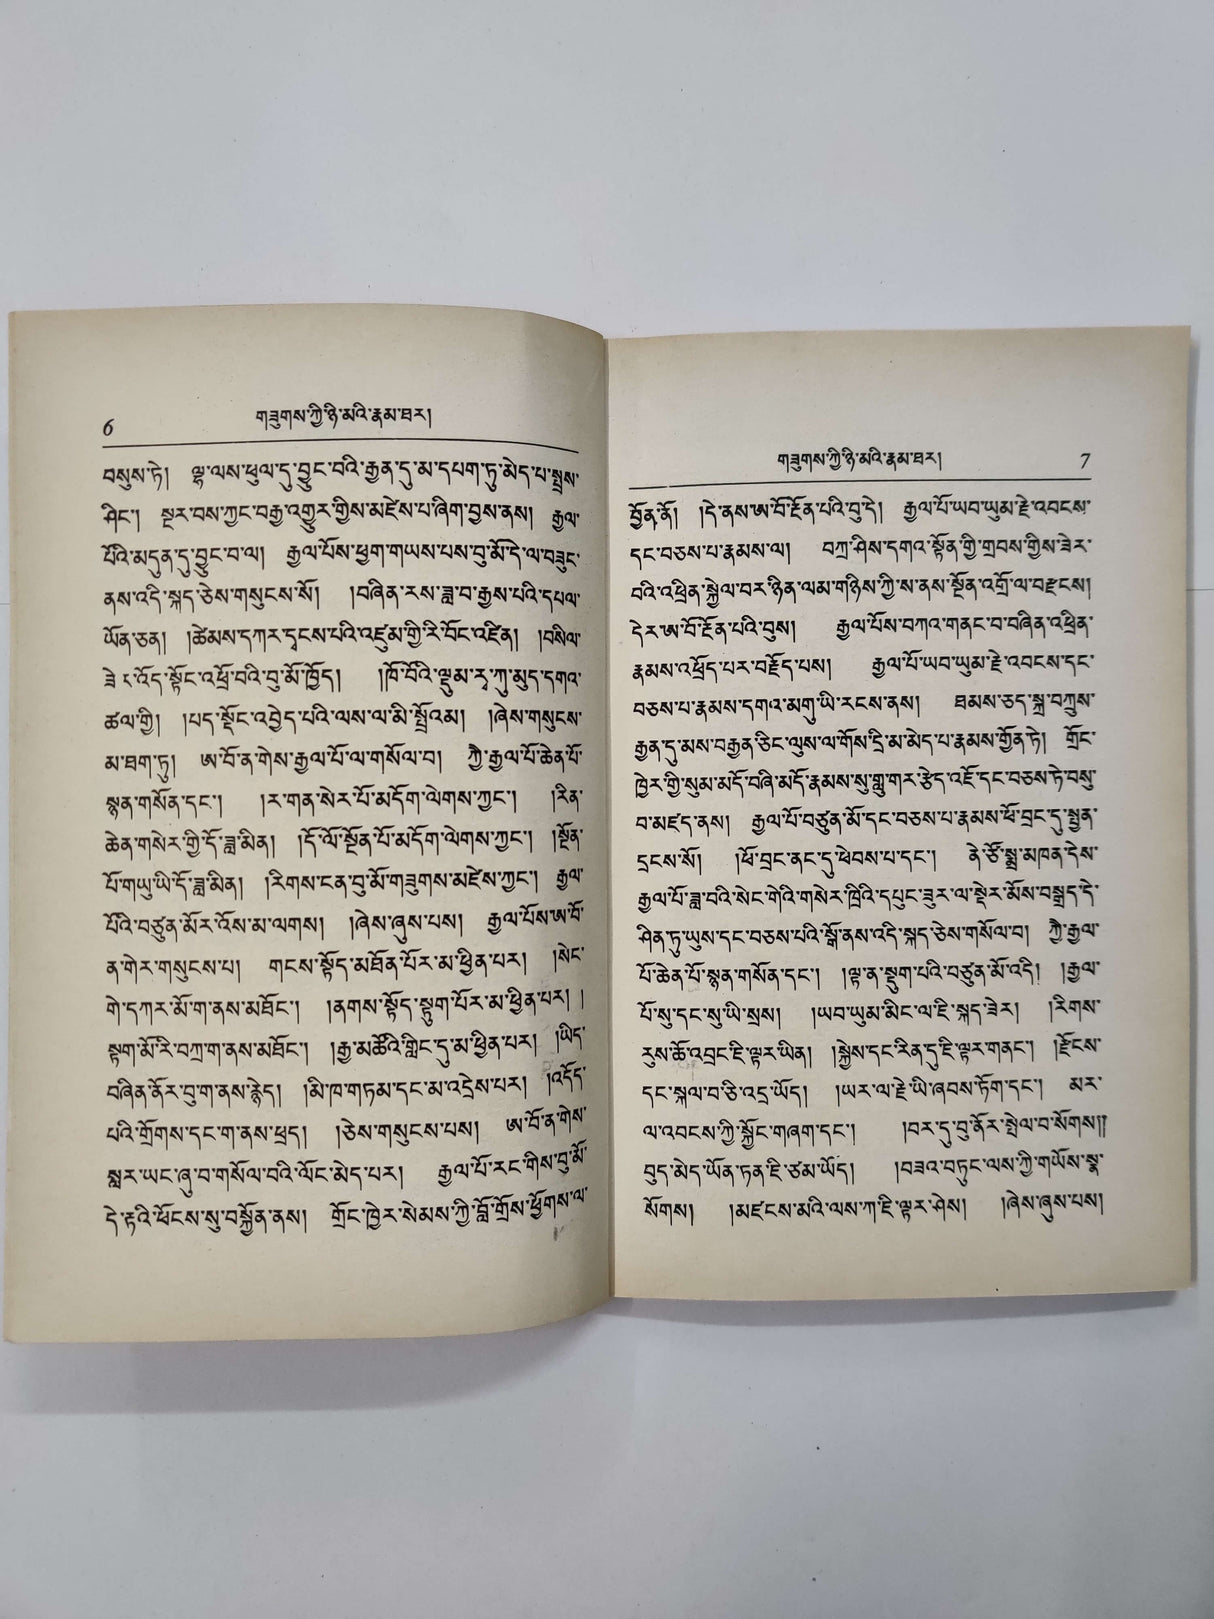 6 གཟུགས་ཀྱི་ཉི་མའི་རྣམ་ཐར།
བསུས་ཏེ། ལྷ་ལས་ཕུལ་དུ་བྱུང་བའི་རྒྱན་དུ་མ་དཔག་ཏུ་མེད་པ་སྤྲས་
ཤིང་། སྔར་བས་ཀྱང་བརྒྱ་འགྱུར་གྱིས་མཛེས་པ་ཞིག་བྱས་ནས། རྒྱལ་
པོའི་མདུན་དུ་བྱུང་བ་ལ། རྒྱལ་པོས་ཕྱག་གཡས་པས་བུ་མོ་དེ་ལ་བཟུང་
ནས་འདི་སྐད་ཅེས་གསུངས་སོ། །བཞིན་རས་ཟླ་བ་རྒྱས་པའི་དཔལ་
ཡོན་ཅན། །ཚེམས་དཀར་དྭངས་པའི་འཛུམ་གྱི་རི་བོང་འཛིན། །བསིལ་
ཟེར་འོད་སྟོང་འཕྲོ་བའི་བུ་མོ་ཁྱོད། །ཁོ་བོའི་ལྡུམ་རྭ་ཀུ་མུད་དགའ་
ཚལ་གྱི། །པད་སྡོང་འབྱེད་པའི་ལས་ལ་མི་སྤྲོའམ། །ཞེས་གསུངས་
མ་ཐག་ཏུ། ཨ་བོ་ན་གེས་རྒྱལ་པོ་ལ་གསོལ་བ། ཀྱེ་རྒྱལ་པོ་ཆེན་པོ་
སྙན་གསོན་དང་། །ར་གན་སེར་པོ་མདོག་ལེགས་ཀྱང་། །རིན་
ཆེན་གསེར་གྱི་དོ་ཟླ་མིན། །དོ་ལོ་སྔོན་པོ་མདོག་ལེགས་ཀྱང་། །སྔོན་
པོ་གཡུ་ཡི་དོ་ཟླ་མིན། །རིགས་ངན་བུ་མོ་གཟུགས་མཛེས་ཀྱང་། རྒྱལ་
པོའི་བཙུན་མོར་འོས་མ་ལགས། །ཞེས་ཞུས་པས། རྒྱལ་པོས་ཨ་བོ་
ན་གེར་གསུངས་པ། གངས་སྟོད་མཐོན་པོར་མ་ཕྱིན་པར། །སེང་
གེ་དཀར་མོ་ག་ནས་མཐོང་། །ནགས་སྟོད་སྟུག་པོར་མ་ཕྱིན་པར། །
སྟག་མོ་རི་བཀྲ་ག་ནས་མཐོང་། །རྒྱ་མཚོའི་གླིང་དུ་མ་ཕྱིན་པར། །ཡིད་
བཞིན་ནོར་བུ་ག་ནས་རྙེད། །མི་ཁ་གཏམ་དང་མ་འདྲེས་པར། །འདོད་
པའི་གྲོགས་དང་ག་ནས་ཕྲད། །ཅེས་གསུངས་པས། ཨ་བོ་ན་གེས་
སླར་ཡང་ཞུ་བ་གསོལ་བའི་ལོང་མེད་པར། རྒྱལ་པོ་རང་གིས་བུ་མོ་
དེ་རྟའི་ཕོངས་སུ་བསྐྱོན་ནས། གྲོང་ཁྱེར་སེམས་ཀྱི་བློ་གྲོས་ཕྱོགས་ལ་
གཟུགས་ཀྱི་ཉི་མའི་རྣམ་ཐར། 7
བྱོན་ནོ། །དེ་ནས་ཨ་བོ་རྔོན་པའི་བུ་དེ། རྒྱལ་པོ་ཡབ་ཡུམ་རྗེ་འབངས་
དང་བཅས་པ་རྣམས་ལ། བཀྲ་ཤིས་དགའ་སྟོན་གྱི་གྲབས་གྱིས་ཟེར་
བའི་འཕྲིན་སྐྱེལ་བར་ཉིན་ལམ་གཉིས་ཀྱི་ས་ནས་སྔོན་འགྲོ་ལ་བརྫངས།
དེར་ཨ་བོ་རྔོན་པའི་བུས། རྒྱལ་པོས་བཀའ་གནང་བ་བཞིན་འཕྲིན་
རྣམས་འཕྲོད་པར་བརྗོད་པས། རྒྱལ་པོ་ཡབ་ཡུམ་རྗེ་འབངས་དང་
བཅས་པ་རྣམས་དགའ་མགུ་ཡི་རངས་ནས། ཐམས་ཅད་སྐྲ་བཀྲུས་
རྒྱན་དུ་མས་བརྒྱན་ཅིང་ལུས་ལ་གོས་དྲི་མ་མེད་པ་རྣམས་གྱོན་ཏེ། གྲོང་
ཁྱེར་གྱི་སུམ་མདོ་བཞི་མདོ་རྣམས་སུ་གླུ་གར་རྩེད་འཇོ་དང་བཅས་ཏེ་བསུ་
བ་མཛད་ནས། རྒྱལ་པོ་བཙུན་མོ་དང་བཅས་པ་རྣམས་ཕོ་བྲང་དུ་སྤྱན་
དྲངས་སོ། །ཕོ་བྲང་ནང་དུ་ཕེབས་པ་དང་། ནེ་ཙོ་སྨྲ་མཁན་དེས་
རྒྱལ་པོ་ཟླ་བའི་སེང་གེའི་གསེར་ཁྲིའི་དཔུང་ཟུར་ལ་སྡེར་མོས་བསྒྲད་དེ་
ཤིན་ཏུ་ཡུས་དང་བཅས་པའི་སྒོ་ནས་འདི་སྐད་ཅེས་གསོལ་བ། ཀྱེ་རྒྱལ་
པོ་ཆེན་པོ་སྙན་གསོན་དང་། །ལྟ་ན་སྡུག་པའི་བཙུན་མོ་འདི། །རྒྱལ་
པོ་སུ་དང་སུ་ཡི་སྲས། །ཡབ་ཡུམ་མིང་ལ་ཇི་སྐད་ཟེར། །རིགས་
རུས་ཆོ་འབྲང་ཇི་ལྟར་ཡིན། །སྐྱེས་དང་རིན་དུ་ཇི་ལྟར་གནང་། །རྫོངས་
དང་སྐལ་བ་ཅི་འདྲ་ཡོད། །ཡར་ལ་རྗེ་ཡི་ཞབས་ཏོག་དང་། མར་
ལ་འབངས་ཀྱི་སྐྱོང་གཞག་དང་། །བར་དུ་བུ་ནོར་སྤེལ་བ་སོགས།།
བུད་མེད་ཡོན་ཏན་ཇི་ཙམ་ཡོད། །བཟའ་བཏུང་ལས་ཀྱི་གཡོས་སྣ་
སོགས། །མཛངས་མའི་ལས་ཀ་ཇི་ལྟར་ཤེས། །ཞེས་ཞུས་པས།